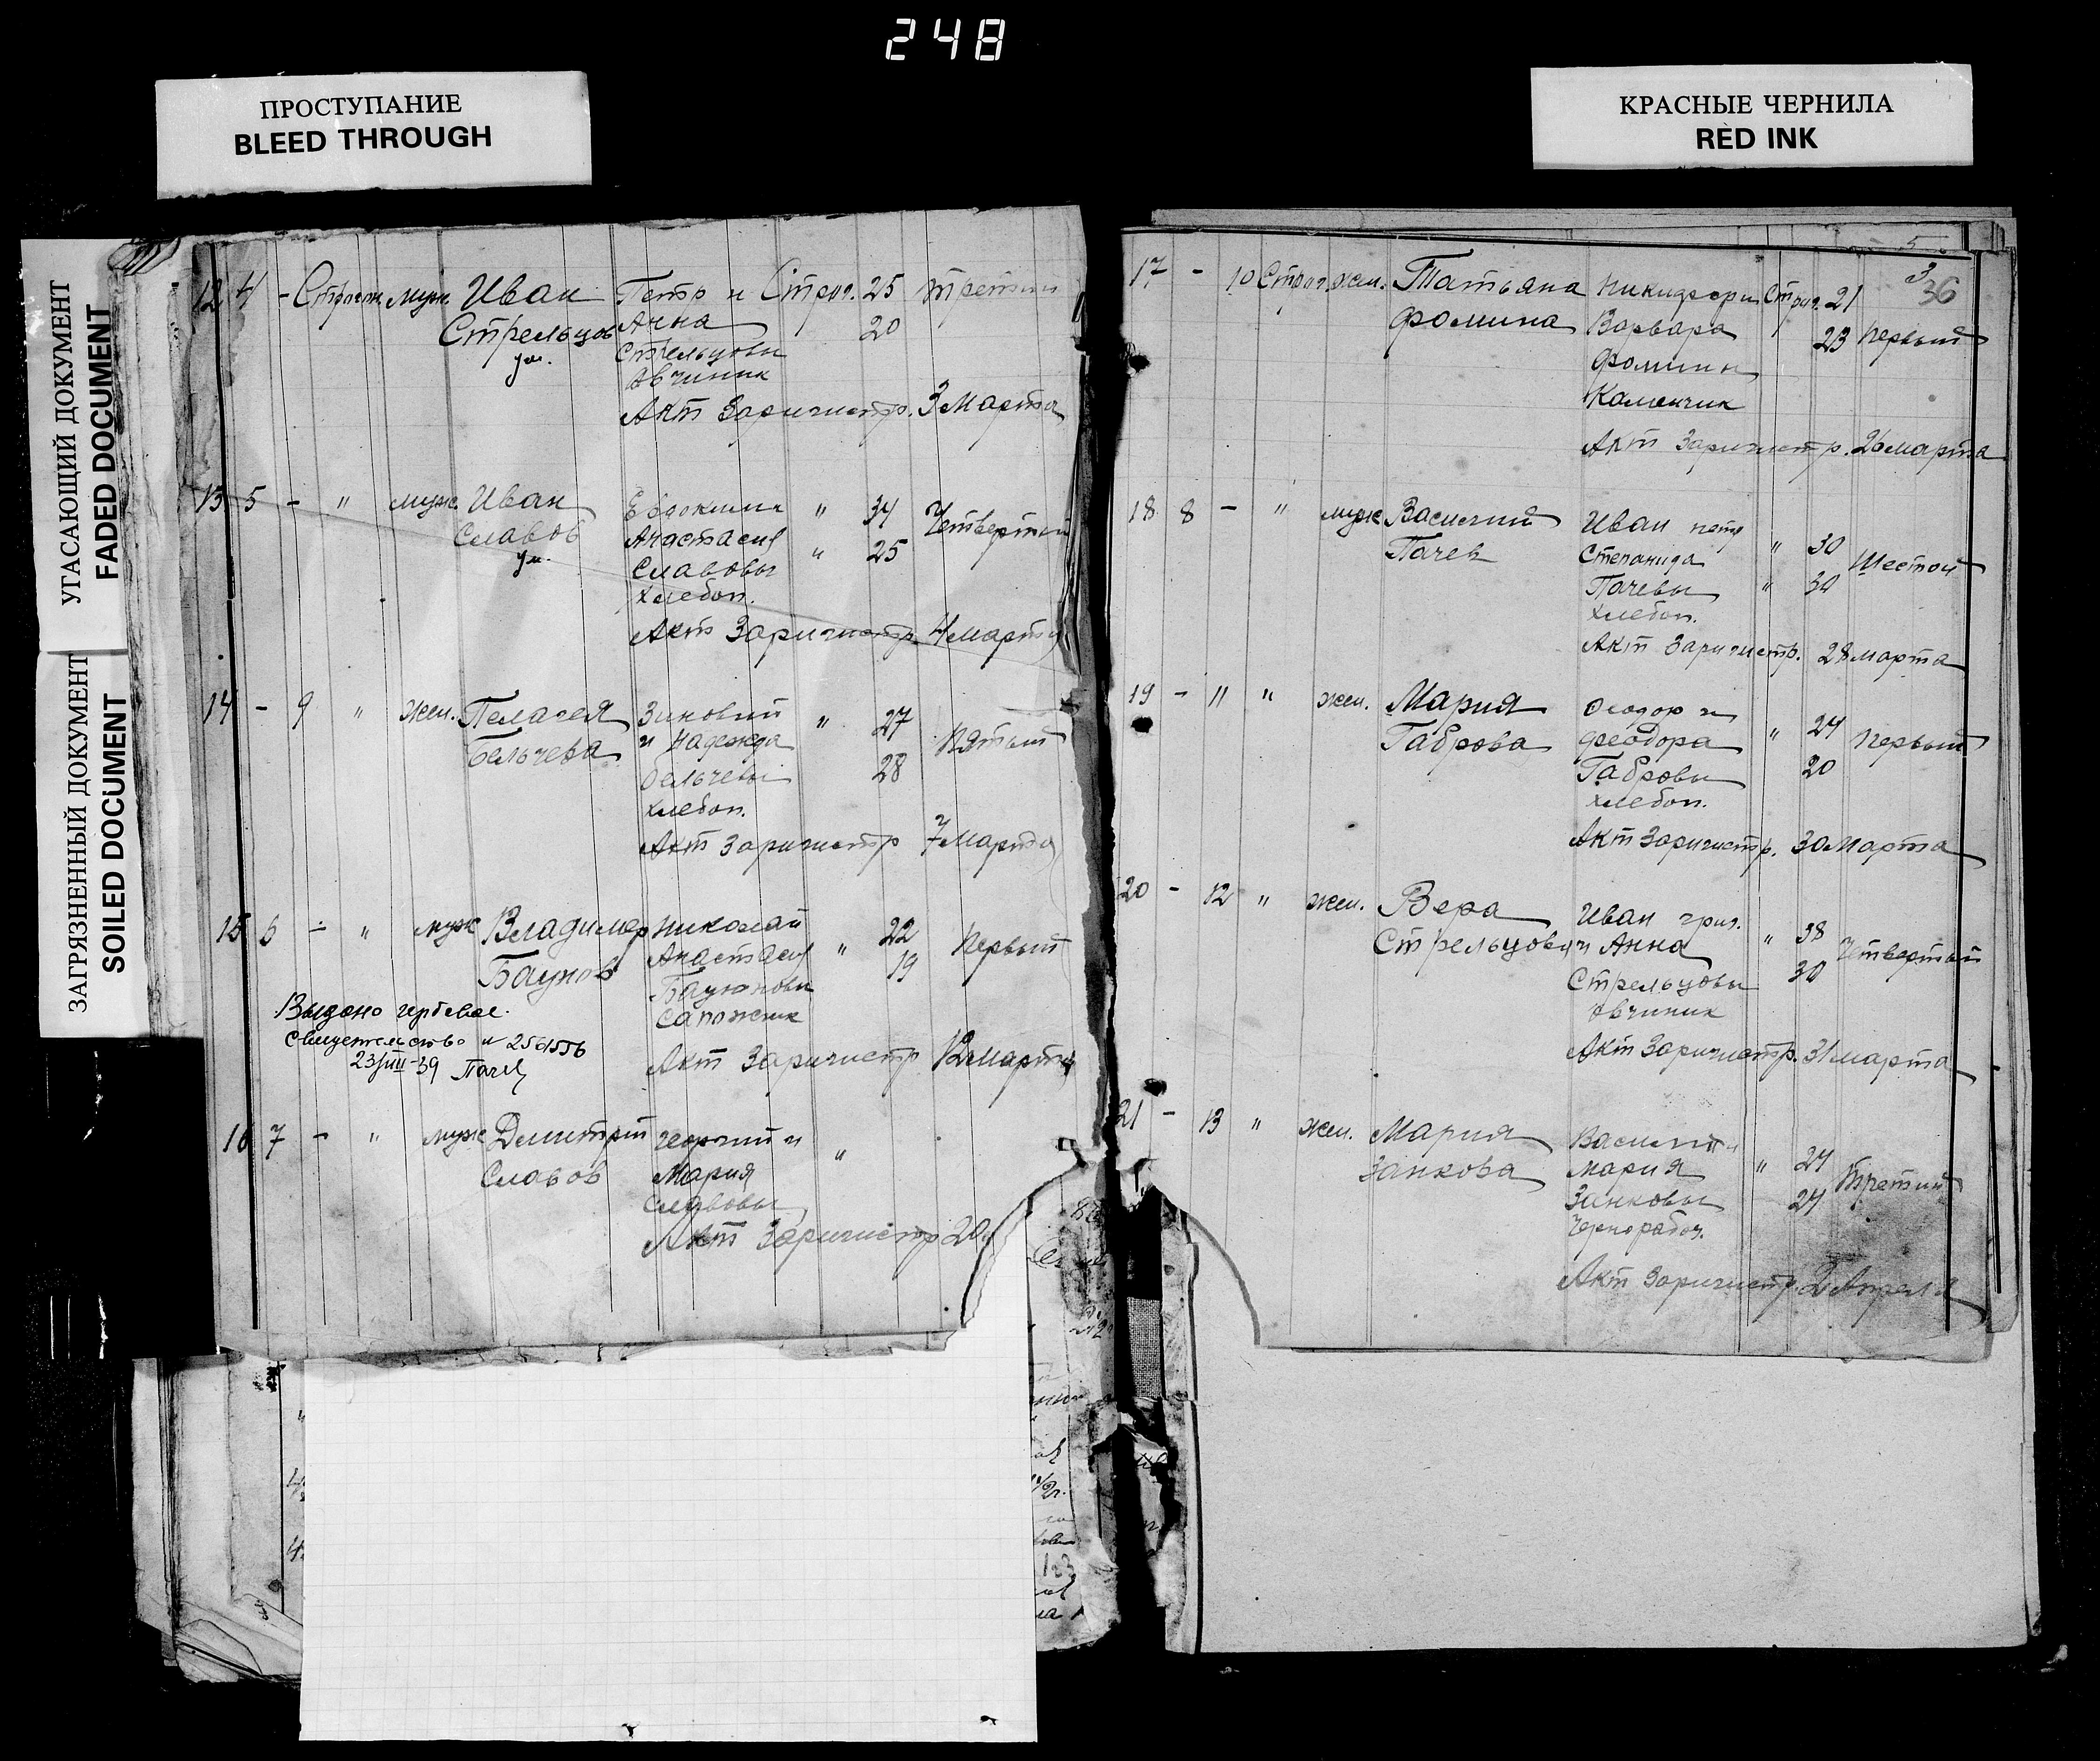 248
ПРОСТУПАНИЕ
BLEED THROUGH
КРАСНЫЕ ЧЕРНИЛА
RED INK
УГАСАЮЩИЙ ДОКУМЕНТ
FADED DOCUMENT
ЗАГРЯЗНЕННЫЙ ДОКУМЕНТ
SOILED DOCUMENT
12 4 - муж. Иван Петр и Строг. 25 третий
Стрельцов Анна 20
ум. Стрельцовы
Овчиник
Акт Заригистр. 3 Марта
13 5 - " муж. Иван Евдоким " 34 Четвертый
Славов Анастасия " 25
ум. Славовы
хлебоп.
Акт Заригистр. 4 Марта
14 - 9 " жен. Пелагея Зиновий " 27 Пятый
Бельчева и Надежда 28
Бельчевы
хлебоп.
Акт Заригистр 7 Марта
15 6 - " муж Владимер Николай 22 Первый
Баунов Анастасия " 19
Сапожник
Выдано гербовое
свидетельство № 2561556
23/III-39
Акт Заригистр 12 марта
16 7 - " муж Димитрий Георгий и "
Славов Мария
Славовы
Акт Заригистр 20
5
3
36
17 - 10 Строг. жен. Татьяна Никифор и Строг. 21
Фомина Варвара 23 Первый
Фомины
Каменчик
Акт Заригистр. 26 марта
18 8 - " муж Василий Иван петр " 30
Пачев Степанида Шестой
Пачевы " 30
хлебоп.
Акт Заригистр. 28 марта
19 - 11 " жен. Мария Феодор и " 24 Первый
Габрова Феодора 20
Габровы
хлебоп.
Акт Заригистр. 30 Марта
20 - 12 " жен. Вера Иван григ. " 38 Четвертый
Стрельцова и Анна 30
Стрельцовы
Овчиник
Акт Заригистр. 31 марта
21 - 13 " жен. Мария Василий и
Занкова Мария " 24 Третий
Занковы 24
Чернорабоч.
Акт Заригистр. 2 Апреля